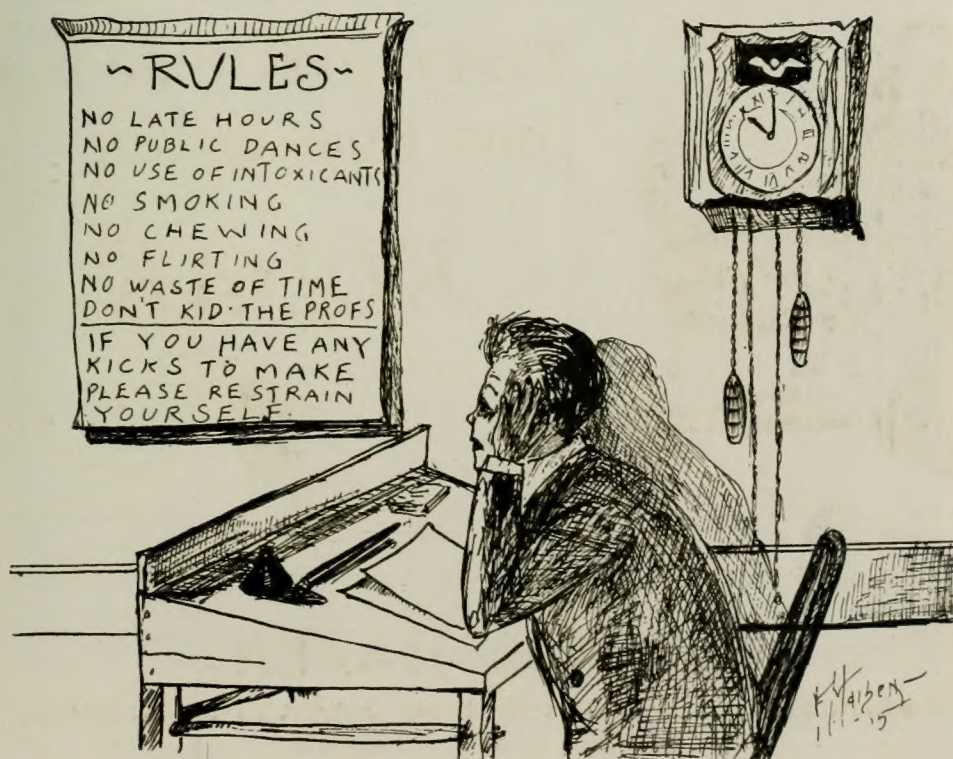 ~RULES~
NO LATE HOURS
NO PUBLIC DANCES
NO USE OF INTOXICANTS
NO SMOKING
NO CHEWING
NO FLIRTING
NO WASTE OF TIME
DON'T KID·THE PROFS
IF YOU HAVE ANY
KICKS TO MAKE
PLEASE RESTRAIN
YOURSELF.